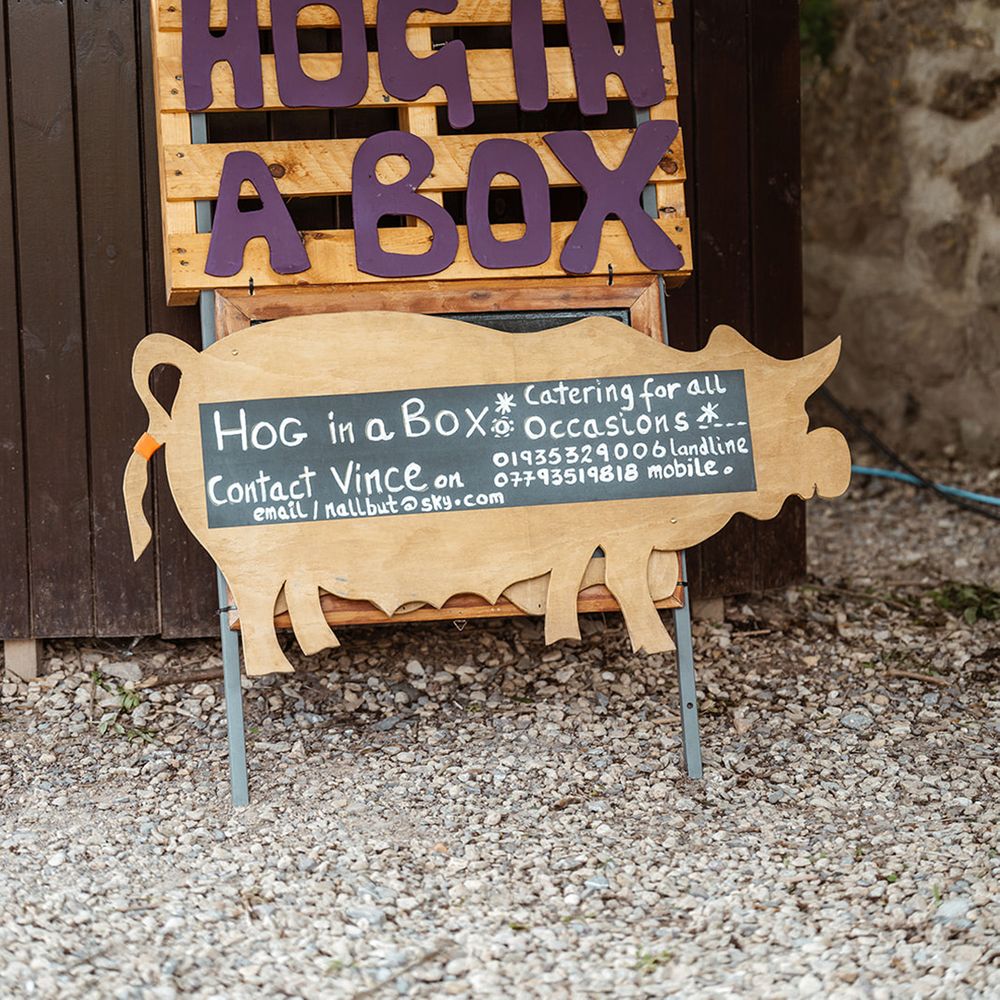 HOG IN
A BOX
HOG in a BOX
Catering for all
Occasions
Contact Vince on
01935329006 landline
07793519818 mobile.
email / nallbut@sky.com